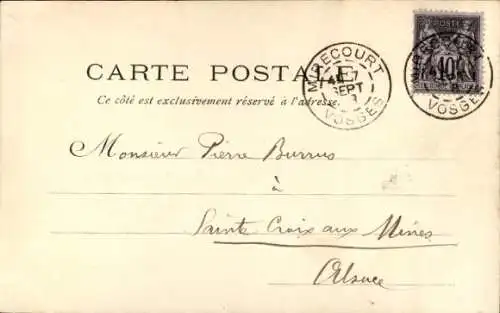 POSTE
10
MIRECOURT
7
SEPT
VOSGES
MIRECOURT
VOSGES
CARTE POSTALE
Ce côté est exclusivement réservé à l'adresse.
Monsieur Pierre Burrus
à
Sainte Croix aux Mines
Alsace